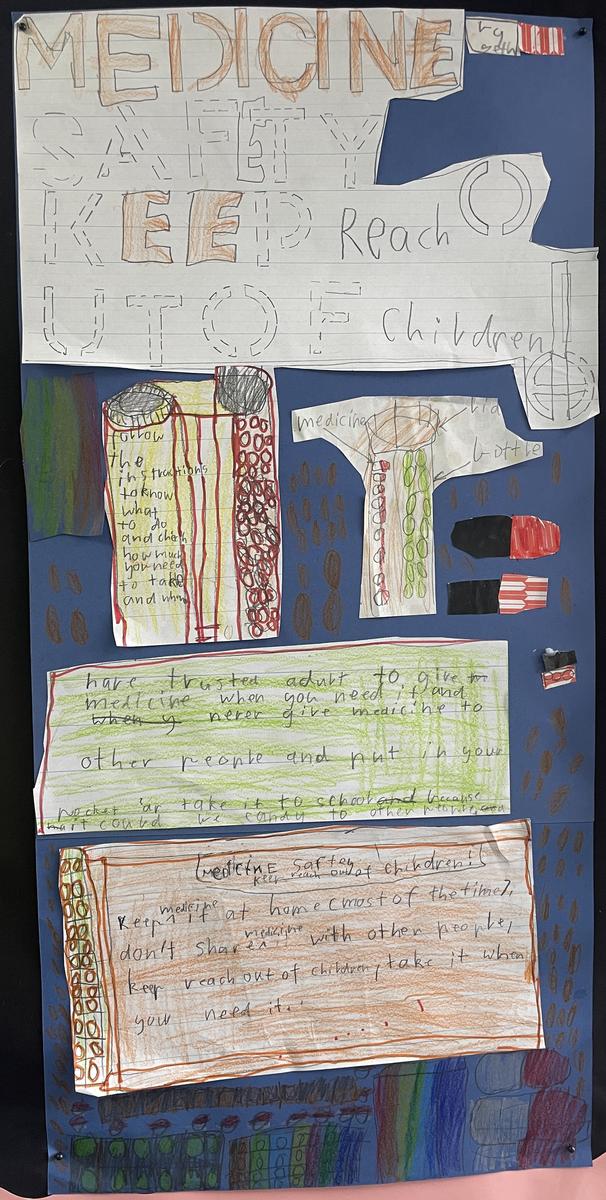 MEDICINE
SAFETY
KEEP Reach O
UT OF children!
follow
the
instructions
to know
what
to do
and check
how much
you need
to take
and when
medicine
lid
bottle
have trusted adult to give
medicine when you need it and
when y never give medicine to
other people and put in your
pocket or take it to school and because
could be candy to other people
Medicine Saftey
keep reach out of children!!
medicine
Keep it at home (most of the time),
medicine
don't share with other people,
keep reach out of children, take it when
your need it.